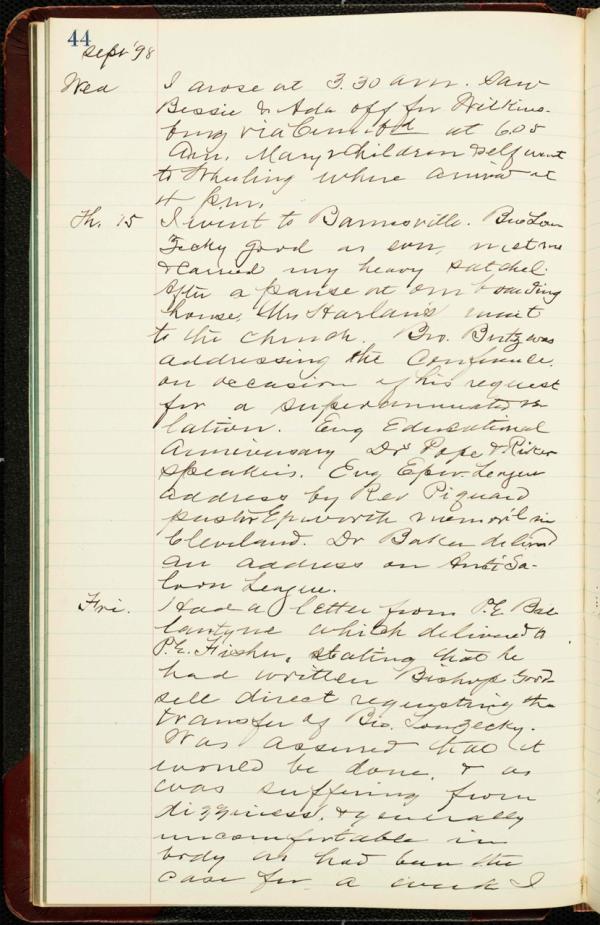 44
Sept '98
Wed I arose at 3.30 a.m. Saw
Bessie & Ada off for Wilkins-
burg via Cumb'l'd at 6.05
a.m. Mary & Children & self went
to Wheeling where arrived at
4 p.m.
Th. 15 I went to Barnesville. Bro Lon
Zecky good as ever, met me
& carried my heavy satchel.
After a pause at our boarding
house, Mrs Harlan's went
to the church. Bro. Birtz was
addressing the Conference.
on occasion of his request
for a superannuated re
lation. Eng Educational
Anniversary Drs Pope & Riker
speakers. Eng Epw. League
address by Rev Piquard
pastor Epworth memor'l in
Cleveland. Dr Baker deliv'd
an address on Anti Sa-
loon League.
Fri. Had a letter from P.E. Bal-
lantyne which delivered to
P.E. Fisher, stating that he
had written Bishop Good-
sell direct requesting the
transfer of Bro. Lonzecky.
Was assured that it
would be done, & as
was suffering from
dizziness, & generally
uncomfortable in
body as had been the
case for a week I